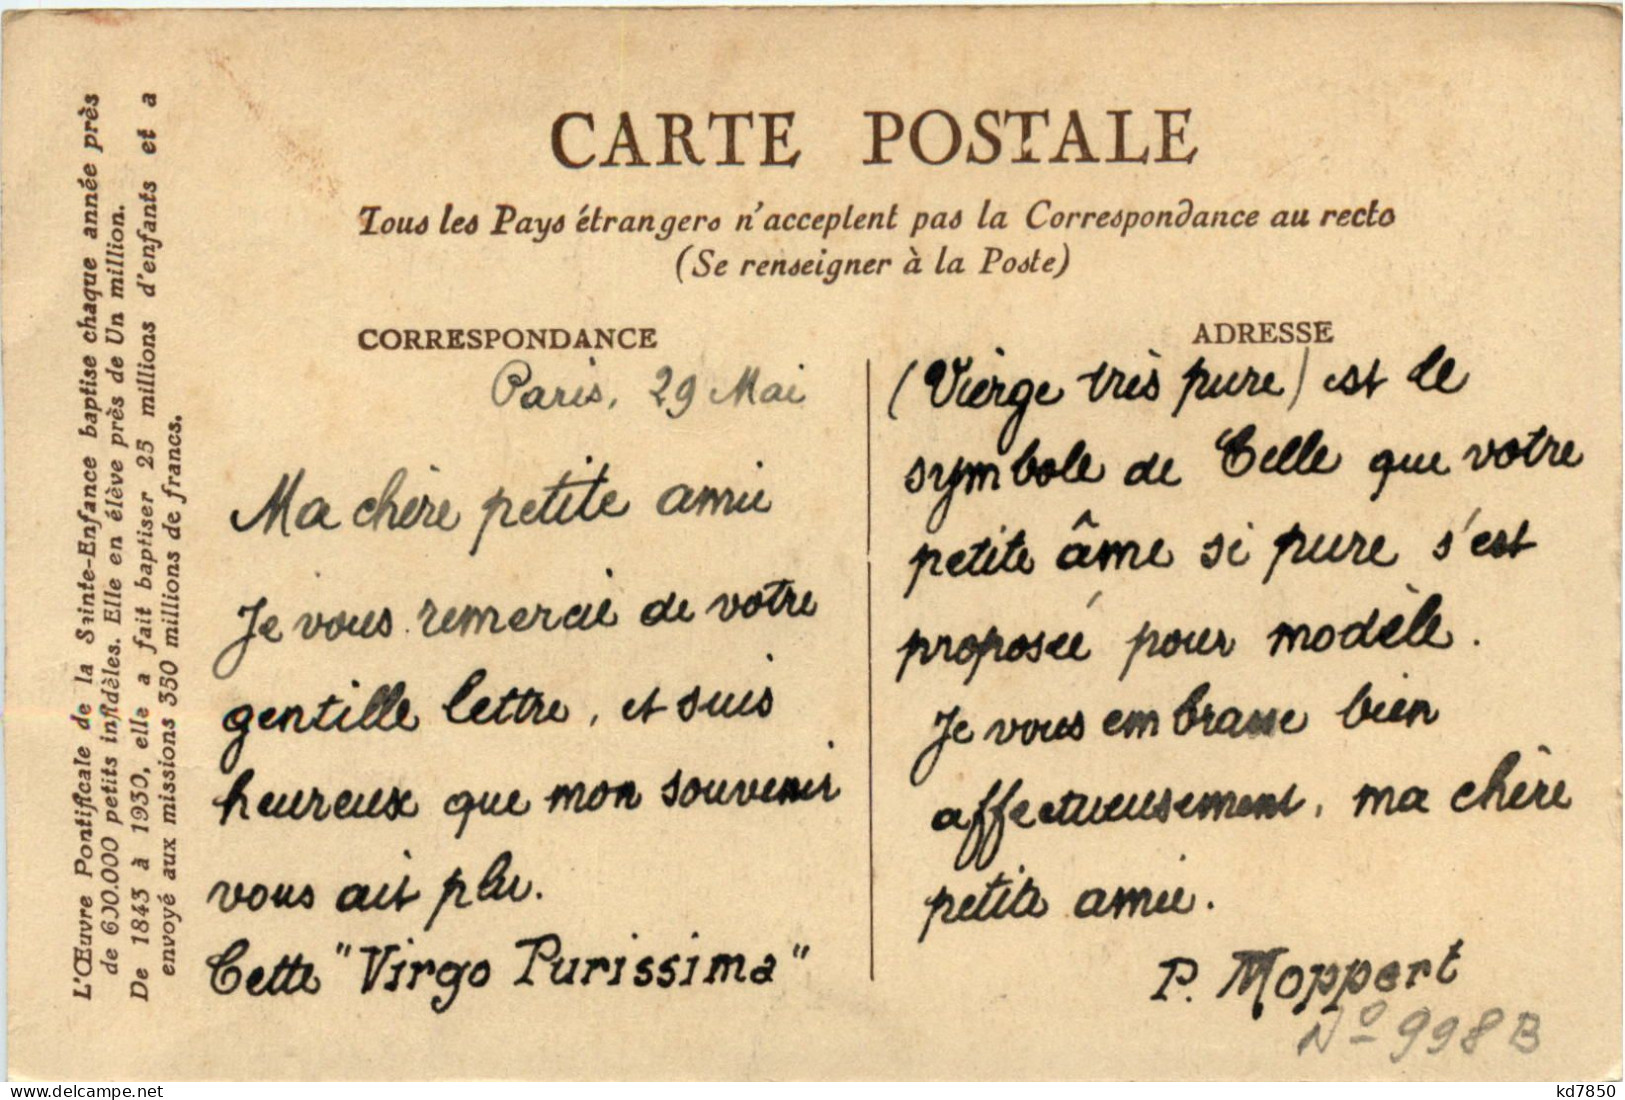 CARTE POSTALE
Tous les Pays étrangers n'acceptent pas la Correspondance au recto
(Se renseigner à la Poste)
L'Œuvre Pontificale de la Sainte-Enfance baptise chaque année près
de 600.000 petits infidèles. Elle en élève près de Un million.
De 1843 à 1930, elle a fait baptiser 25 millions d'enfants et a
envoyé aux missions 350 millions de francs.
CORRESPONDANCE
Paris, 29 Mai
Ma chère petite amie
Je vous remercie de votre
gentille lettre, et suis
heureux que mon souvenir
vous ait plu.
Cette "Virgo Purissima"
ADRESSE
(Vierge très pure) est le
symbole de Celle que votre
petite âme si pure s'est
proposée pour modèle.
Je vous embrasse bien
affectueusement, ma chère
petite amie.
P. Moppert
No 998 B
kd7850